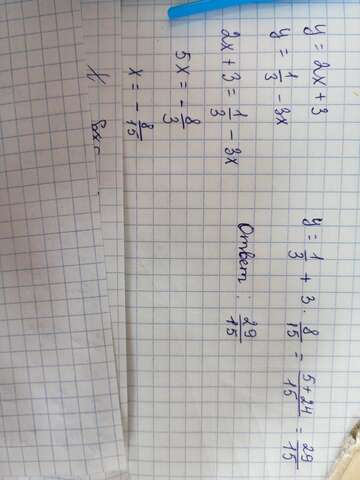 y = 2x + 3
y = 1/3 - 3x
2x + 3 = 1/3 - 3x
5x = - 8/3
x = - 8/15
y = 1/3 + 3 · 8/15 = 5+24/15 = 29/15
Ответ: 29/15